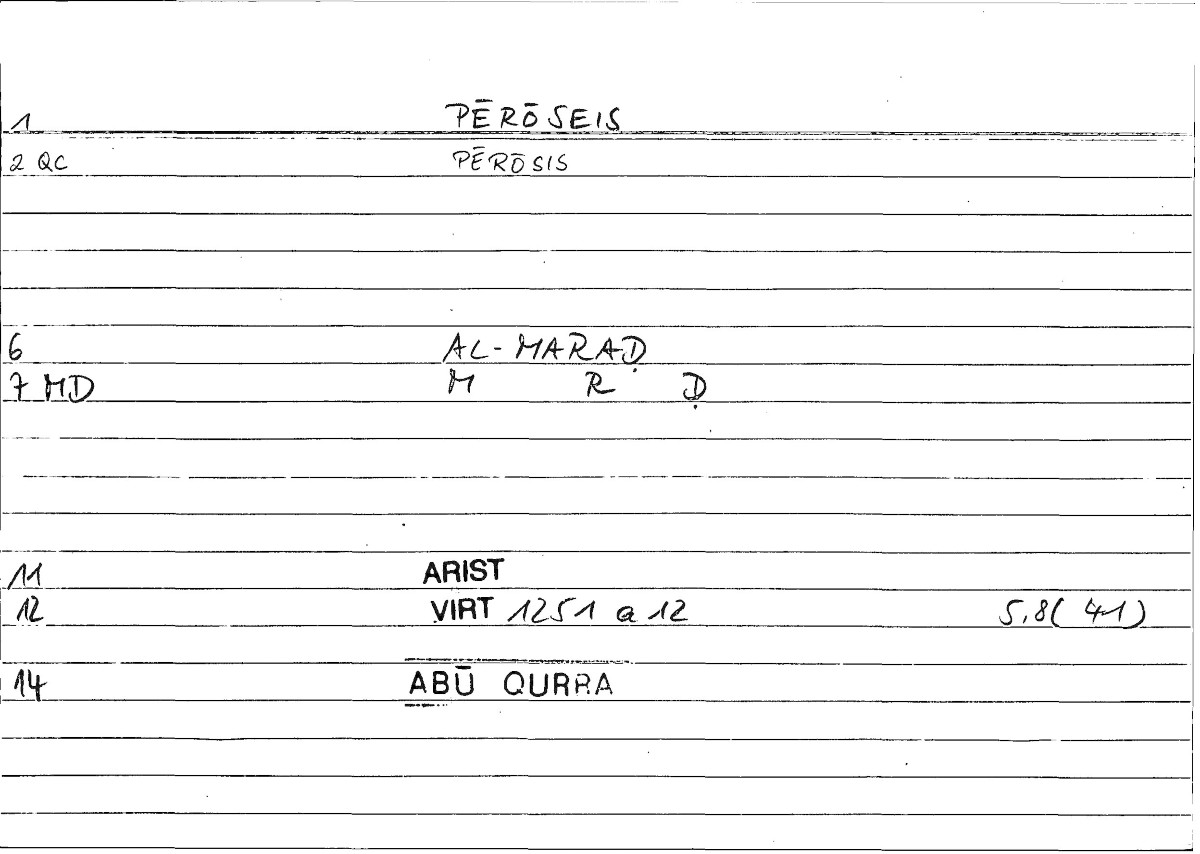 1 PĒRŌSEIS
2 QC PĒRŌSIS
6 AL-MARAḌ
7 MD M R Ḍ
11 ARIST
12 VIRT 1251 a 12 5,8( 41)
14 ABŪ QURRA